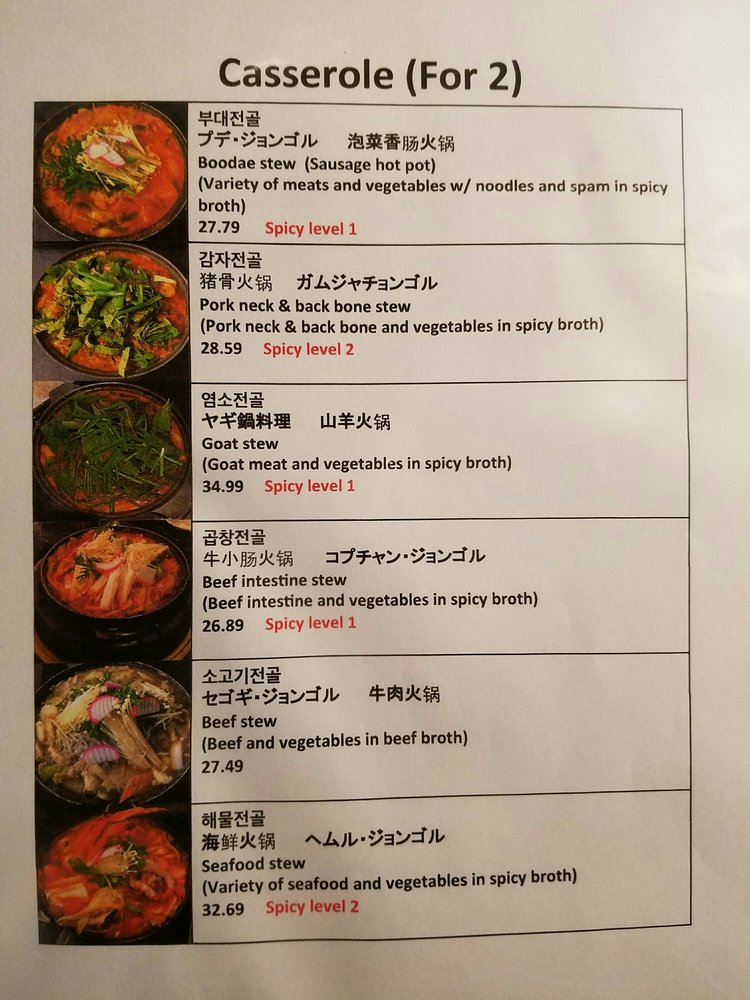 Casserole (For 2)
부대전골
プデ・ジョンゴル 泡菜香肠火锅
Boodae stew (Sausage hot pot)
(Variety of meats and vegetables w/ noodles and spam in spicy
broth)
27.79 Spicy level 1
감자전골
猪骨火锅 ガムジャチョンゴル
Pork neck & back bone stew
(Pork neck & back bone and vegetables in spicy broth)
28.59 Spicy level 2
염소전골
ヤギ鍋料理 山羊火锅
Goat stew
(Goat meat and vegetables in spicy broth)
34.99 Spicy level 1
곱창전골
牛小肠火锅 コプチャン・ジョンゴル
Beef intestine stew
(Beef intestine and vegetables in spicy broth)
26.89 Spicy level 1
소고기전골
セゴギ・ジョンゴル 牛肉火锅
Beef stew
(Beef and vegetables in beef broth)
27.49
해물전골
海鲜火锅 ヘムル・ジョンゴル
Seafood stew
(Variety of seafood and vegetables in spicy broth)
32.69 Spicy level 2